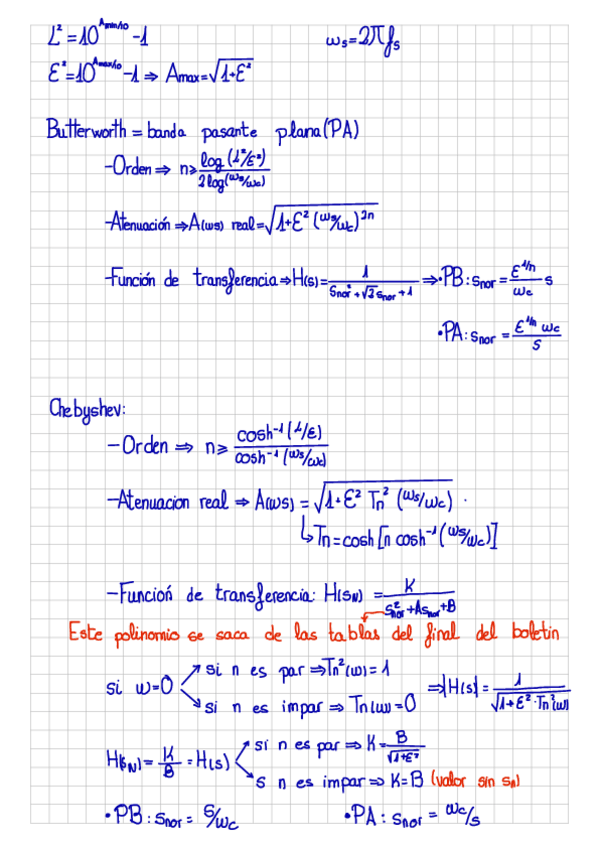 L² = 10^(Amin/10) -1 ωs = 2πfs
ε² = 10^(Amax/10) -1 ⇒ Amax = √(1+ε²)
Butterworth = banda pasante plana (PA)
-Orden ⇒ n ≥ log(L²/ε²) / 2log(ωs/ωc)
-Atenuación ⇒ A(ωs) real = √(1+ε²(ωs/ωc)^2n)
-Función de transferencia ⇒ H(s) = 1 / (Snor² + √2 Snor + 1) ⇒ •PB: Snor = (ε^(1/n) / ωc) s
•PA: Snor = ε^(1/n) ωc / s
Chebyshev:
-Orden ⇒ n ≥ cosh⁻¹(L/ε) / cosh⁻¹(ωs/ωc)
-Atenuacion real ⇒ A(ωs) = √(1+ε² Tn² (ωs/ωc)) .
↳ Tn = cosh[n cosh⁻¹(ωs/ωc)]
-Función de transferencia: H(sN) = K / (S²nor + ASnor + B)
Este polinomio se saca de las tablas del final del boletin
si n es par ⇒ Tn²(ω) = 1
si ω=0 ⇒ |H(s)| = 1 / √(1+ε²·Tn²(ω))
si n es impar ⇒ Tn(ω) = 0
si n es par ⇒ K = B / √(1+ε²)
H(sN) = K/B = H(s)
s n es impar ⇒ K=B (valor sin sn)
•PB: Snor = s/ωc •PA: Snor = ωc/s